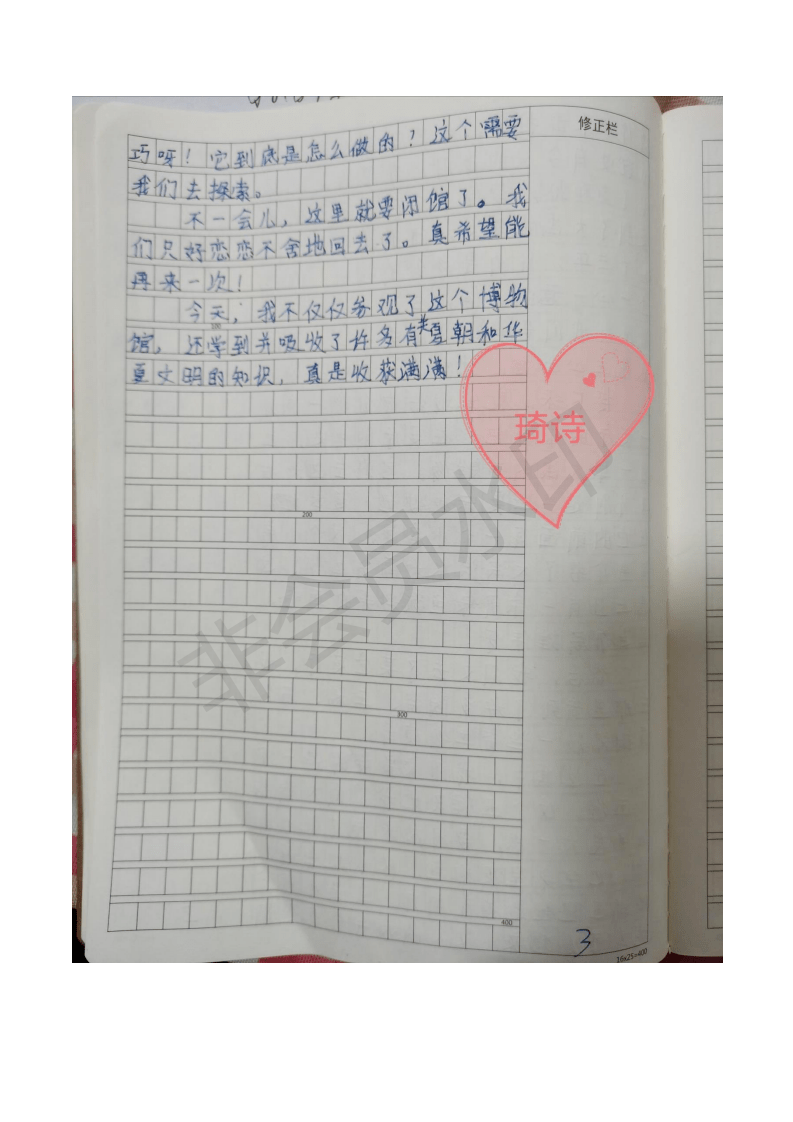 修正栏
巧呀！它到底是怎么做的？这个需要
我们去探索。
不一会儿，这里就要闭馆了。我
们只好恋恋不舍地回去了。真希望能
再来一次！
今天，我不仅仅参观了这个博物
馆，还学到并吸收了许多有关夏朝和华
夏文明的知识，真是收获满满！
100
琦诗
200
非会员水印
300
400
3
16x25=400